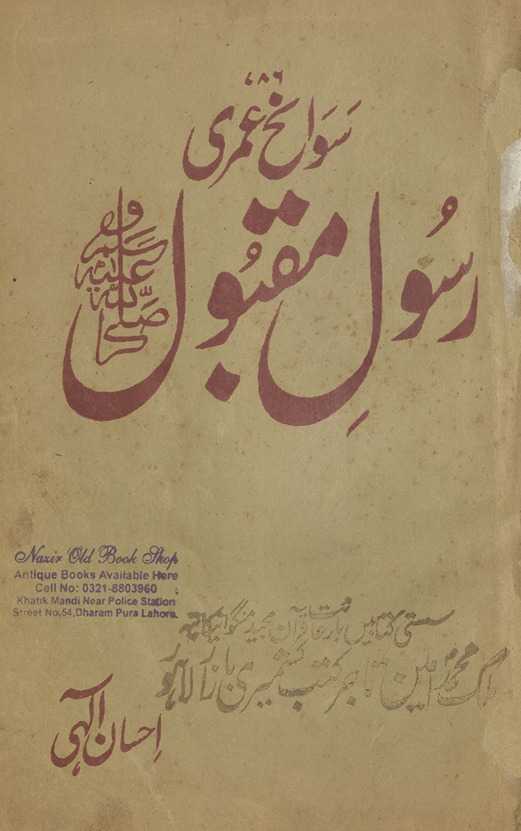 ۷۸۶
سَوَانحِ عُمری
رسُولِ مقبُول
صَلَّی اللّٰہ عَلَیْہِ وَسَلَّم
Nazir Old Book Shop
Antique Books Available Here
Cell No: 0321-8803960
Khatik Mandi Near Police Station
Street No,54,Dharam Pura Lahore.
سستی کتابیں قرآن مجید منگوانیکا پتہ
ملک محمد امین تاجر کتب کشمیری بازار لاہور
اِحسان الٰہی